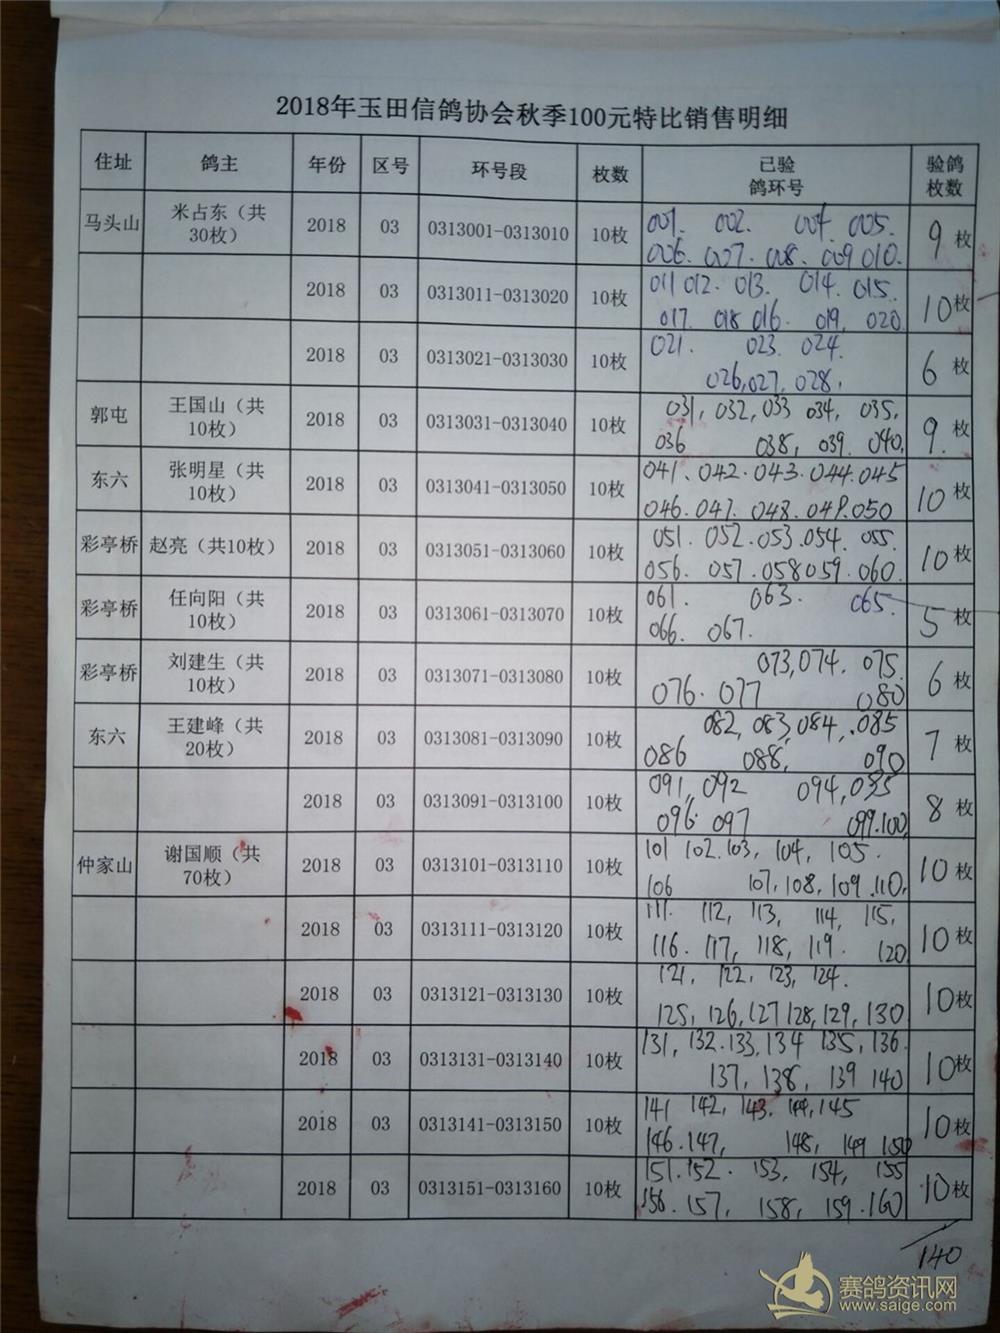 2018年玉田信鸽协会秋季100元特比销售明细
住址 鸽主 年份 区号 环号段 枚数 已验 验鸽
鸽环号 枚数
马头山 米占东（共 2018 03 0313001-0313010 10枚 001. 002. 004. 005. 9 枚
30枚） 006. 007. 008. 009 010.
2018 03 0313011-0313020 10枚 011 012. 013. 014. 015. 10枚
017. 018 016. 019, 020.
2018 03 0313021-0313030 10枚 021. 023. 024. 6 枚
026,027, 028,
郭屯 王国山（共 2018 03 0313031-0313040 10枚 031, 032,033 034, 035, 9. 枚
10枚） 036 038, 039. 040,
东六 张明星（共 2018 03 0313041-0313050 10枚 041. 042. 043. 044. 045 10 枚
10枚） 046. 047. 048. 049. 050
彩亭桥 赵亮（共10枚） 2018 03 0313051-0313060 10枚 051. 052. 053. 054. 055. 10枚
056. 057. 058 059. 060.
彩亭桥 任向阳（共 2018 03 0313061-0313070 10枚 061. 063. 065. 5 枚
10枚） 066. 067.
彩亭桥 刘建生（共 2018 03 0313071-0313080 10枚 073,074. 075. 6 枚
10枚） 076. 077 080
东六 王建峰（共 2018 03 0313081-0313090 10枚 082, 083, 084, 085 7 枚
20枚） 086 088, 090
2018 03 0313091-0313100 10枚 091, 092 094, 095 8 枚
096. 097 099.100,
仲家山 谢国顺（共 2018 03 0313101-0313110 10枚 101 102.103, 104, 105. 10枚
70枚） 106 107, 108, 109 .110,
2018 03 0313111-0313120 10枚 111. 112, 113, 114, 115, 10枚
116. 117, 118, 119. 120
2018 03 0313121-0313130 10枚 121, 122, 123, 124. 10枚
125, 126, 127 128, 129, 130
2018 03 0313131-0313140 10枚 131, 132.133, 134 135, 136. 10枚
137, 138, 139 140
2018 03 0313141-0313150 10枚 141 142, 143. 144, 145 10枚
146.147, 148, 149 150
2018 03 0313151-0313160 10枚 151.152. 153, 154, 155 10枚
156. 157, 158, 159.160
140
赛鸽资讯网
www.saige.com